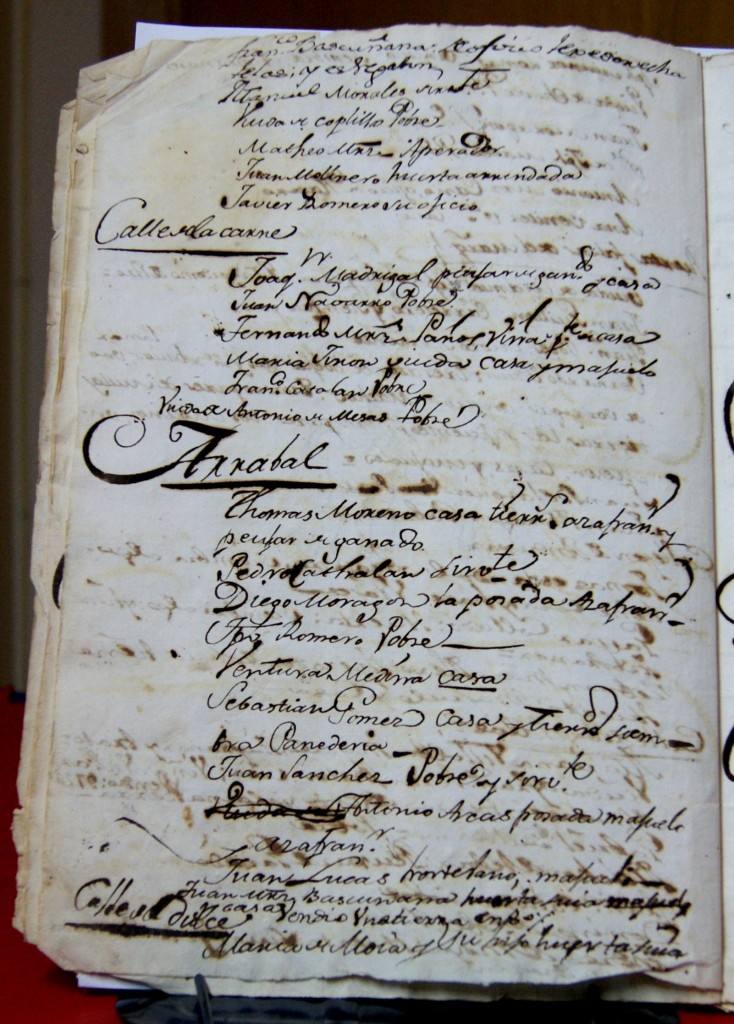 Fran.co Bascuñana
telas, y
Manuel Morales
Viuda de Copillo Pobre
Matheo Mrz. Aperador
Juan Molinero huerta arrendada
Javier Romero su oficio
Calle de la carne
Joaq.n Madrigal pe gando y casa
Juan Nabarro Pobre
Fernando Mrz. Paños, casa
Maria Jinon viuda casa y majuelo
Fran.co Catalan Pobre
Viuda de Antonio de Mesas Pobre
Arrabal
Thomas Moreno casa tierra azafran y
de ganado
Pedro Cathalan sirvte
Diego Moragon la posada Azafran
Romero Pobre
Ventura Medina casa
Sebastian Gomez casa y tierra siem-
bra Panederia
Juan Sanchez Pobre y sirvte
Antonio Arcas posada majuelo
azafran
Juan Lucas hortelano, majuelo
Juan Mrz Bascuñana huerta suia
y casa vendio una tierra
Calle del Dulce
Maria de Moia y su hijo huerta suia